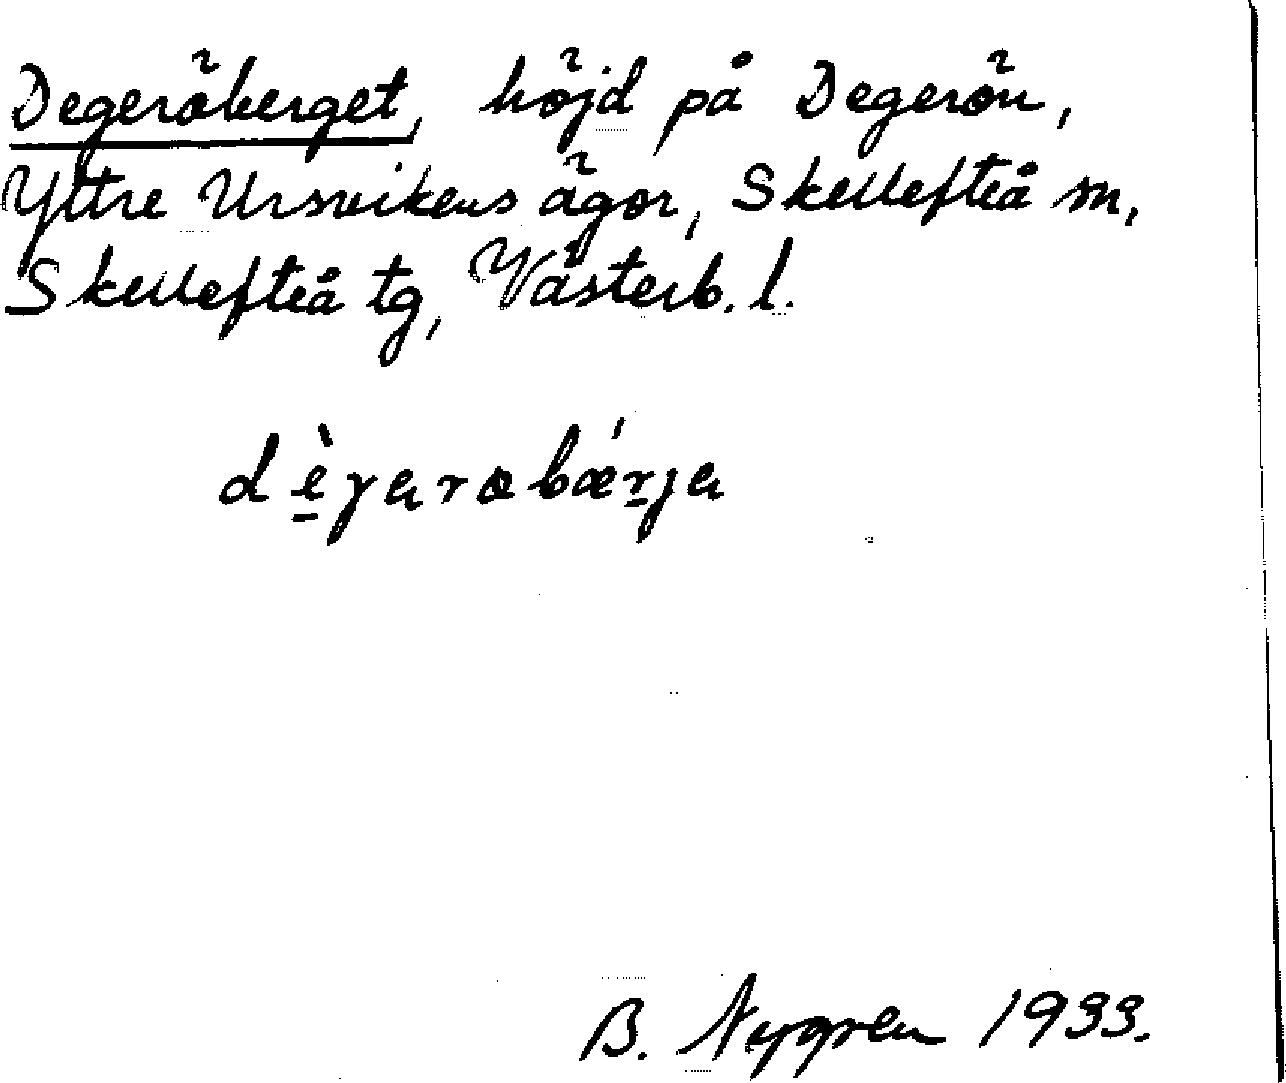 Degeröberget, höjd på Degerön,
Yttre Ursvikens ägor, Skellefteå sn,
Skellefteå tg, Västerb. l.
dè̱γarɷbǽṟja
B. Nygren 1933.